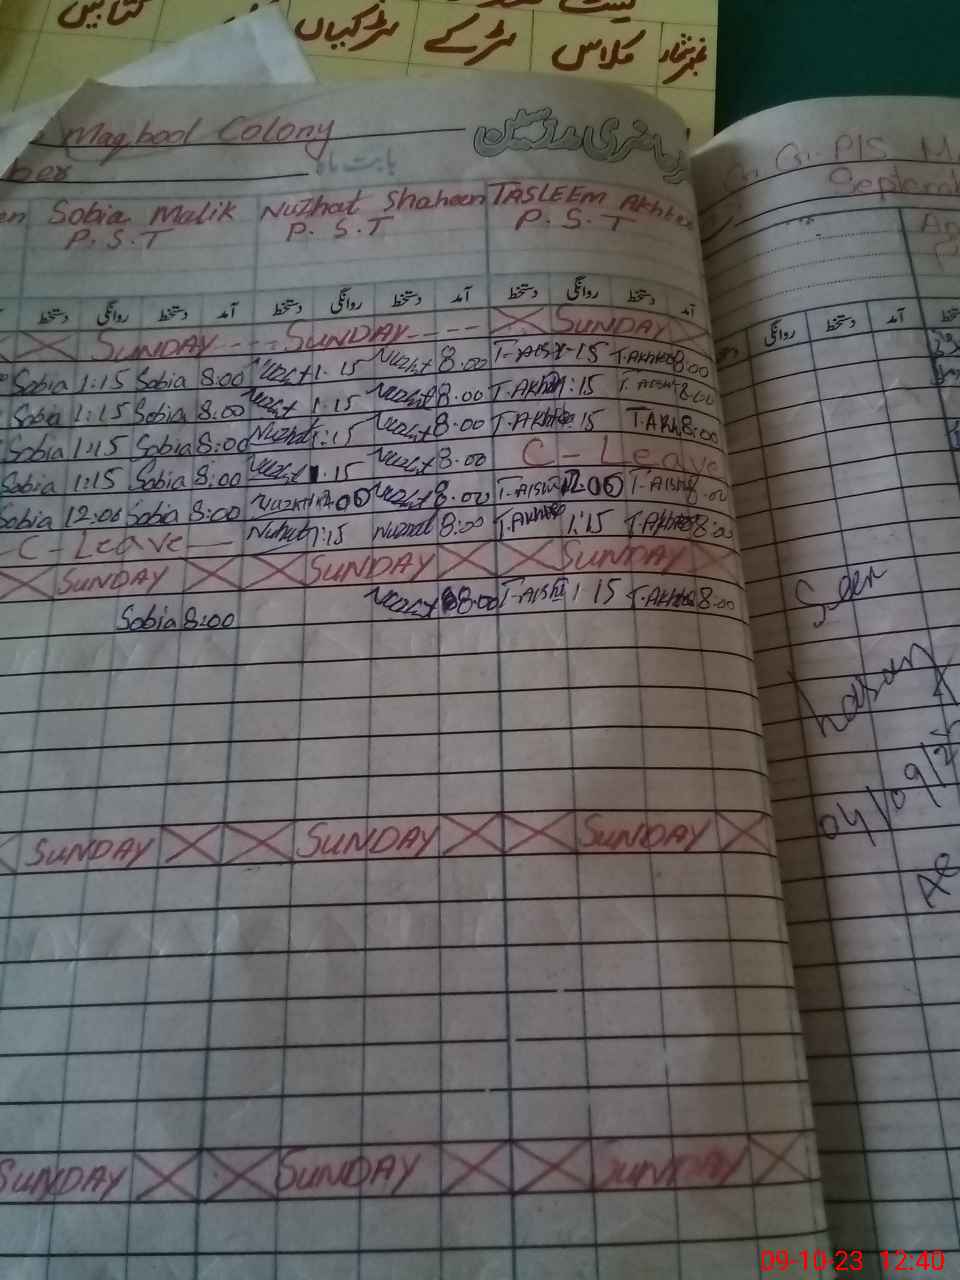 نمبرشمار کلاس لڑکے لڑکیاں
Maqbool Colony
حاضری مدرسین
ber
بابت ماہ
Sobia Malik Nuzhat Shaheen TASLEEM Akhter
P.S.T P.S.T P.S.T
دستخط روانگی دستخط آمد دستخط روانگی دستخط آمد دستخط روانگی دستخط آمد
SUNDAY SUNDAY SUNDAY
Sobia 1:15 Sobia 8:00 Nuzht 1.15 Nuzht 8.00 1-15 T.Akhter 8:00
Sobia 1:15 Sobia 8:00 Nuzht 1.15 Nuzht 8.00 T.Akhtr 1:15 8:00
Sobia 1:15 Sobia 8:00 Nuzhat 1:15 Nuzht 8.00 T.Akhter 1:15 T.Akh 8:00
Sobia 1:15 Sobia 8:00 Nuzht 1.15 Nuzht 8.00 C-Leave
Sobia 12:00 Sobia 8:00 Nuzht 12.00 Nuzht 8.00 12.00 8.00
C-Leave Nuzhat 1:15 Nuzhat 8:00 T.Akhter 1:15 T.Akhter 8:00
SUNDAY SUNDAY SUNDAY
Sobia 8:00 Nuzht 8:00 1:15 T.Akhter 8:00
SUNDAY SUNDAY SUNDAY
SUNDAY SUNDAY SUNDAY
G. P/S M
Septemb
روانگی دستخط آمد
Seen
hasan
04/09/2
09-10-23 12:40